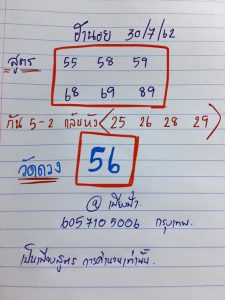 ฮานอย 30/7/62
สูตร 55 58 59
68 69 89
กัน 5-2 กลับหัว 25 26 28 29
วัดดวง 56
@ เพียงฟ้า
6057105006 กรุงเทพ.
เป็นเพียงสูตร การคำนวนเท่านั้น.